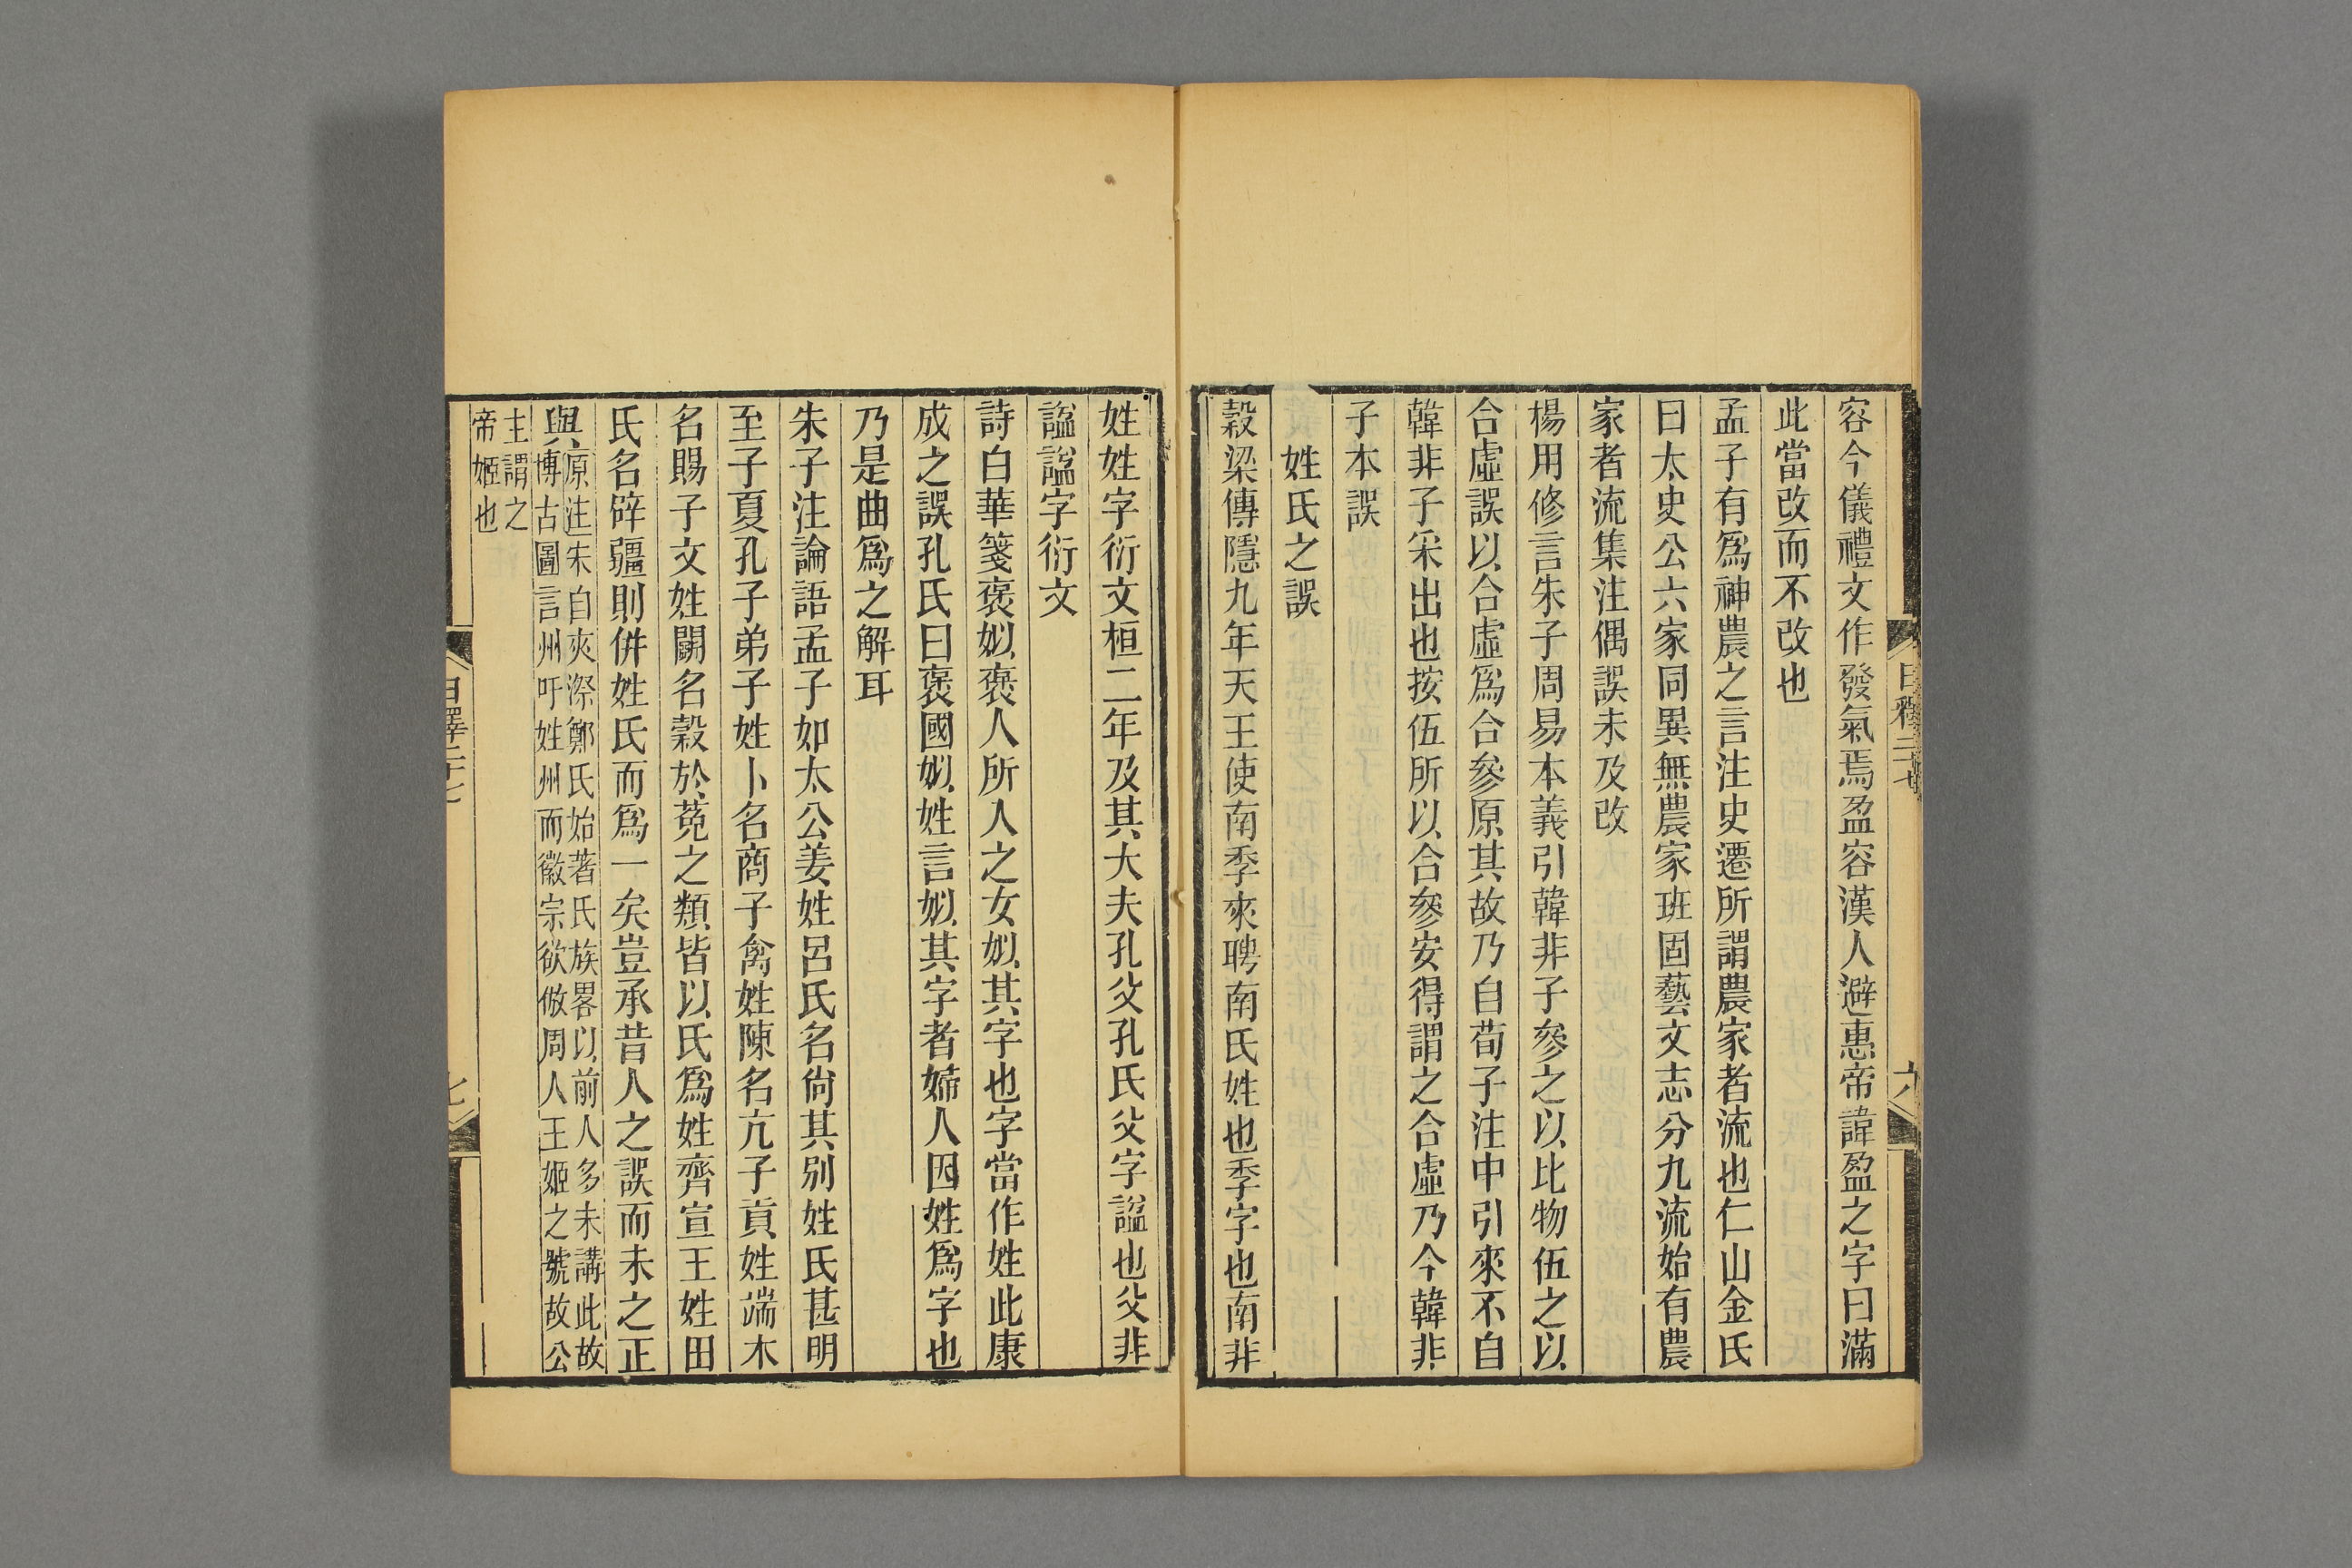 容今儀禮文作發氣焉盈容漢人避惠帝諱盈之字曰滿
此當改而不改也
孟子有爲神農之言注史遷所謂農家者流也仁山金氏
曰太史公六家同異無農家班固藝文志分九流始有農
家者流集注偶誤未及改
楊用修言朱子周易本義引韓非子參之以比物伍之以
合虛誤以合虛爲合參原其故乃自荀子注中引來不自
韓非子采出也按伍所以合參安得謂之合虛乃今韓非
子本誤
姓氏之誤
穀梁傳隱九年天王使南季來聘南氏姓也季字也南非
姓姓字衍文桓二年及其大夫孔父孔氏父字諡也父非
諡諡字衍文
詩白華箋褒姒褒人所入之女姒其字也字當作姓此康
成之誤孔氏曰褒國姒姓言姒其字者婦人因姓爲字也
乃是曲爲之解耳
朱子注論語孟子如太公姜姓呂氏名尙其別姓氏甚明
至子夏孔子弟子姓卜名商子禽姓陳名亢子貢姓端木
名賜子文姓鬭名穀於菟之類皆以氏爲姓齊宣王姓田
氏名辟疆則倂姓氏而爲一矣豈承昔人之誤而未之正
與原注朱自夾漈鄭氏始著氏族畧以前人多未講此故
博古圖言州吁姓州而徽宗欲倣周人王姬之號故公
主謂之
帝姬也
日釋二十七
七
六